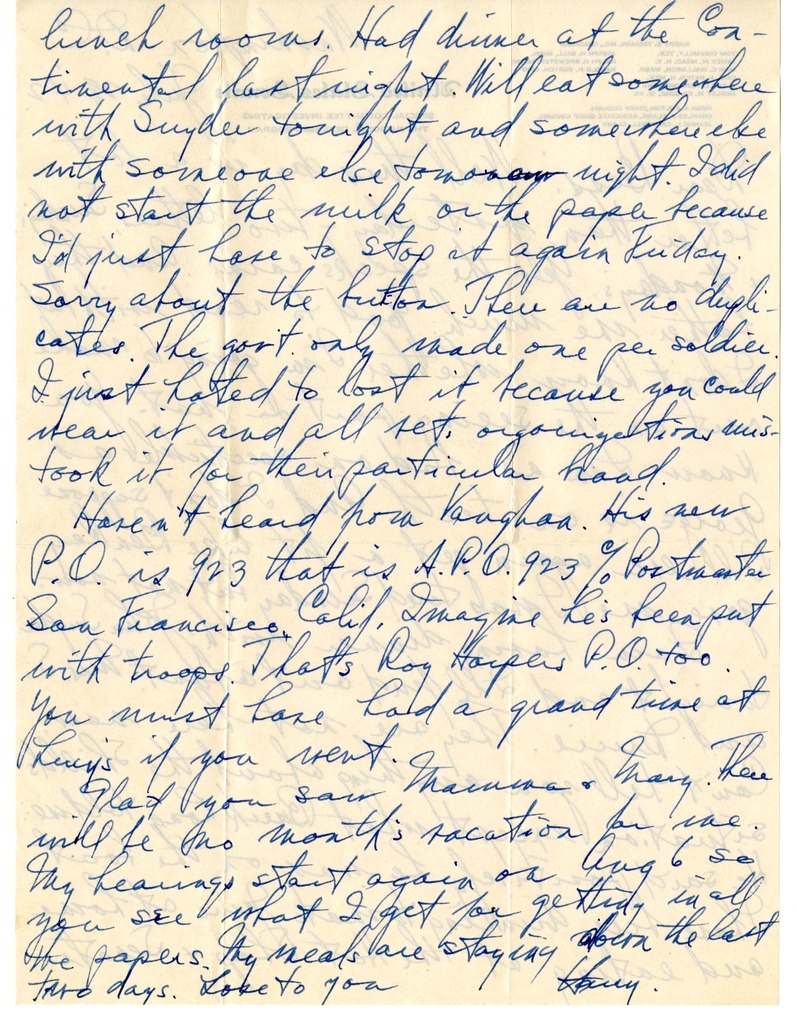 lunch rooms. Had dinner at the Con-
tinental last night. Will eat somewhere
with Snyder tonight and somewhere else
with someone else tomorrow night. I did
not start the milk or the paper because
I'd just have to stop it again Friday.
Sorry about the button. There are no dupli-
cates. The gov't. only made one per soldier.
I just hated to lost it because you could
wear it and all vet. organizations mis-
took it for their particular brand.
Haven't heard from Vaughan. His new
P.O. is 923 that is A.P.O. 923 % Postmaster
San Francisco, Calif. Imagine he's been put
with troops. That's Roy Harpers P.O. too.
You must have had a grand time at
if you went.
Glad you saw Mamma & Mary. There
will be no month's vacation for me.
My hearings start again on Aug 6 so
you see what I get for getting in all
the papers. My meals are staying down the last
two days. Love to you Harry.